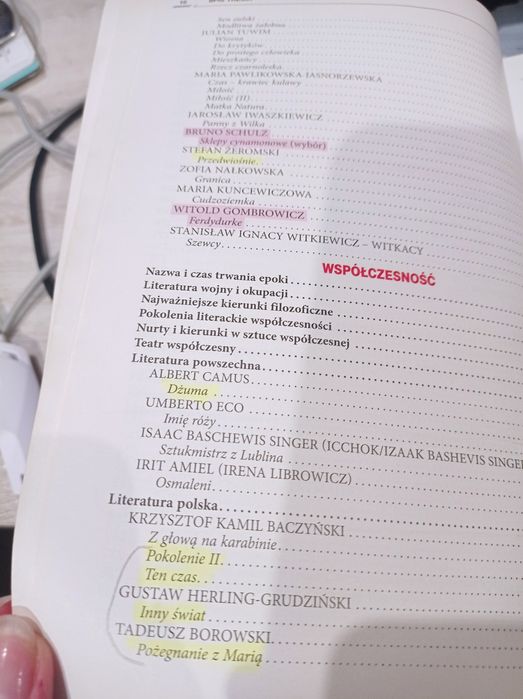 Sen zielski
Modlitwa żałobna
JULIAN TUWIM
Wiosna
Do krytyków
Do prostego człowieka
Mieszkańcy
Rzecz czarnoleska
MARIA PAWLIKOWSKA JASNORZEWSKA
Czas – krawiec kulawy
Miłość
Miłość (II)
Matka Natura
JAROSŁAW IWASZKIEWICZ
Panny z Wilka
BRUNO SCHULZ
Sklepy cynamonowe (wybór)
STEFAN ŻEROMSKI
Przedwiośnie
ZOFIA NAŁKOWSKA
Granica
MARIA KUNCEWICZOWA
Cudzoziemka
WITOLD GOMBROWICZ
Ferdydurke
STANISŁAW IGNACY WITKIEWICZ – WITKACY
Szewcy
WSPÓŁCZESNOŚĆ
Nazwa i czas trwania epoki
Literatura wojny i okupacji
Najważniejsze kierunki filozoficzne
Pokolenia literackie współczesności
Nurty i kierunki w sztuce współczesnej
Teatr współczesny
Literatura powszechna
ALBERT CAMUS
Dżuma
UMBERTO ECO
Imię róży
ISAAC BASCHEWIS SINGER (ICCHOK/IZAAK BASHEVIS SINGER
Sztukmistrz z Lublina
IRIT AMIEL (IRENA LIBROWICZ)
Osmaleni
Literatura polska
KRZYSZTOF KAMIL BACZYŃSKI
Z głową na karabinie
Pokolenie II
Ten czas
GUSTAW HERLING-GRUDZIŃSKI
Inny świat
TADEUSZ BOROWSKI
Pożegnanie z Marią